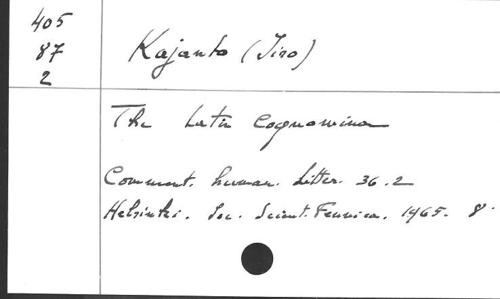 405
87
2
Kajanto (Iiro)
The Latin Cognomina
Comment. human. Litter. 36.2
Helsinki. Soc. Scient. Fennica. 1965. 8°